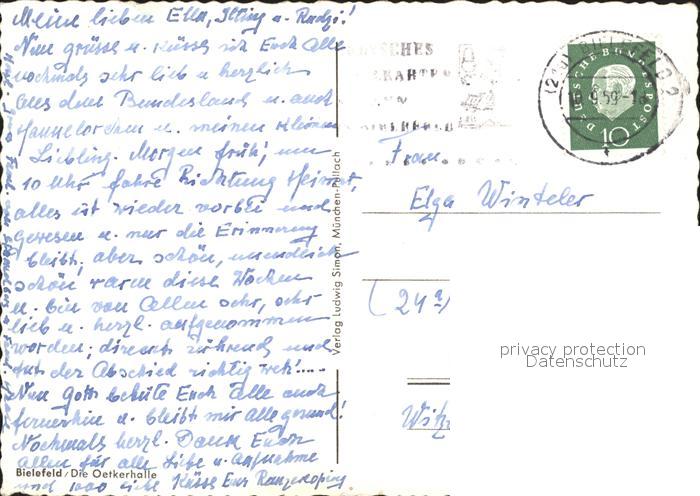 Meine lieben Ella, Ilting u. Rudji!
Nun grüsse u. küsse ich Euch alle
nochmals sehr lieb u. herzlich
aus dem Bundesland u. auch
Hannelorchen u. meinen kleinen
Liebling. Morgen früh, um
10 Uhr fahre Richtung Heimat,
alles ist wieder vorbei und
gewesen u. nur die Erinnerung
bleibt; aber schön, unendlich
schön, waren diese Wochen
u. bin von Allen sehr, sehr
lieb u. herzl. aufgenommen
worden; direkt rührend und
tut der Abschied richtig weh!....
Nun Gott behüte Euch alle auch
fernerhin u. bleibt mir alle gesund!
Nochmals herzl. Dank Euch
allen für alle Liebe u. Aufnahme
und 1000 liebe Küsse Eure
Bielefeld / Die Oetkerhalle
Verlag Ludwig Simon, München-Pullach
BIELEFELD 2
9.59-18
DEUTSCHE BUNDESPOST
10
Frau
Elga Winteler
(24a)
Witz
privacy protection
Datenschutz